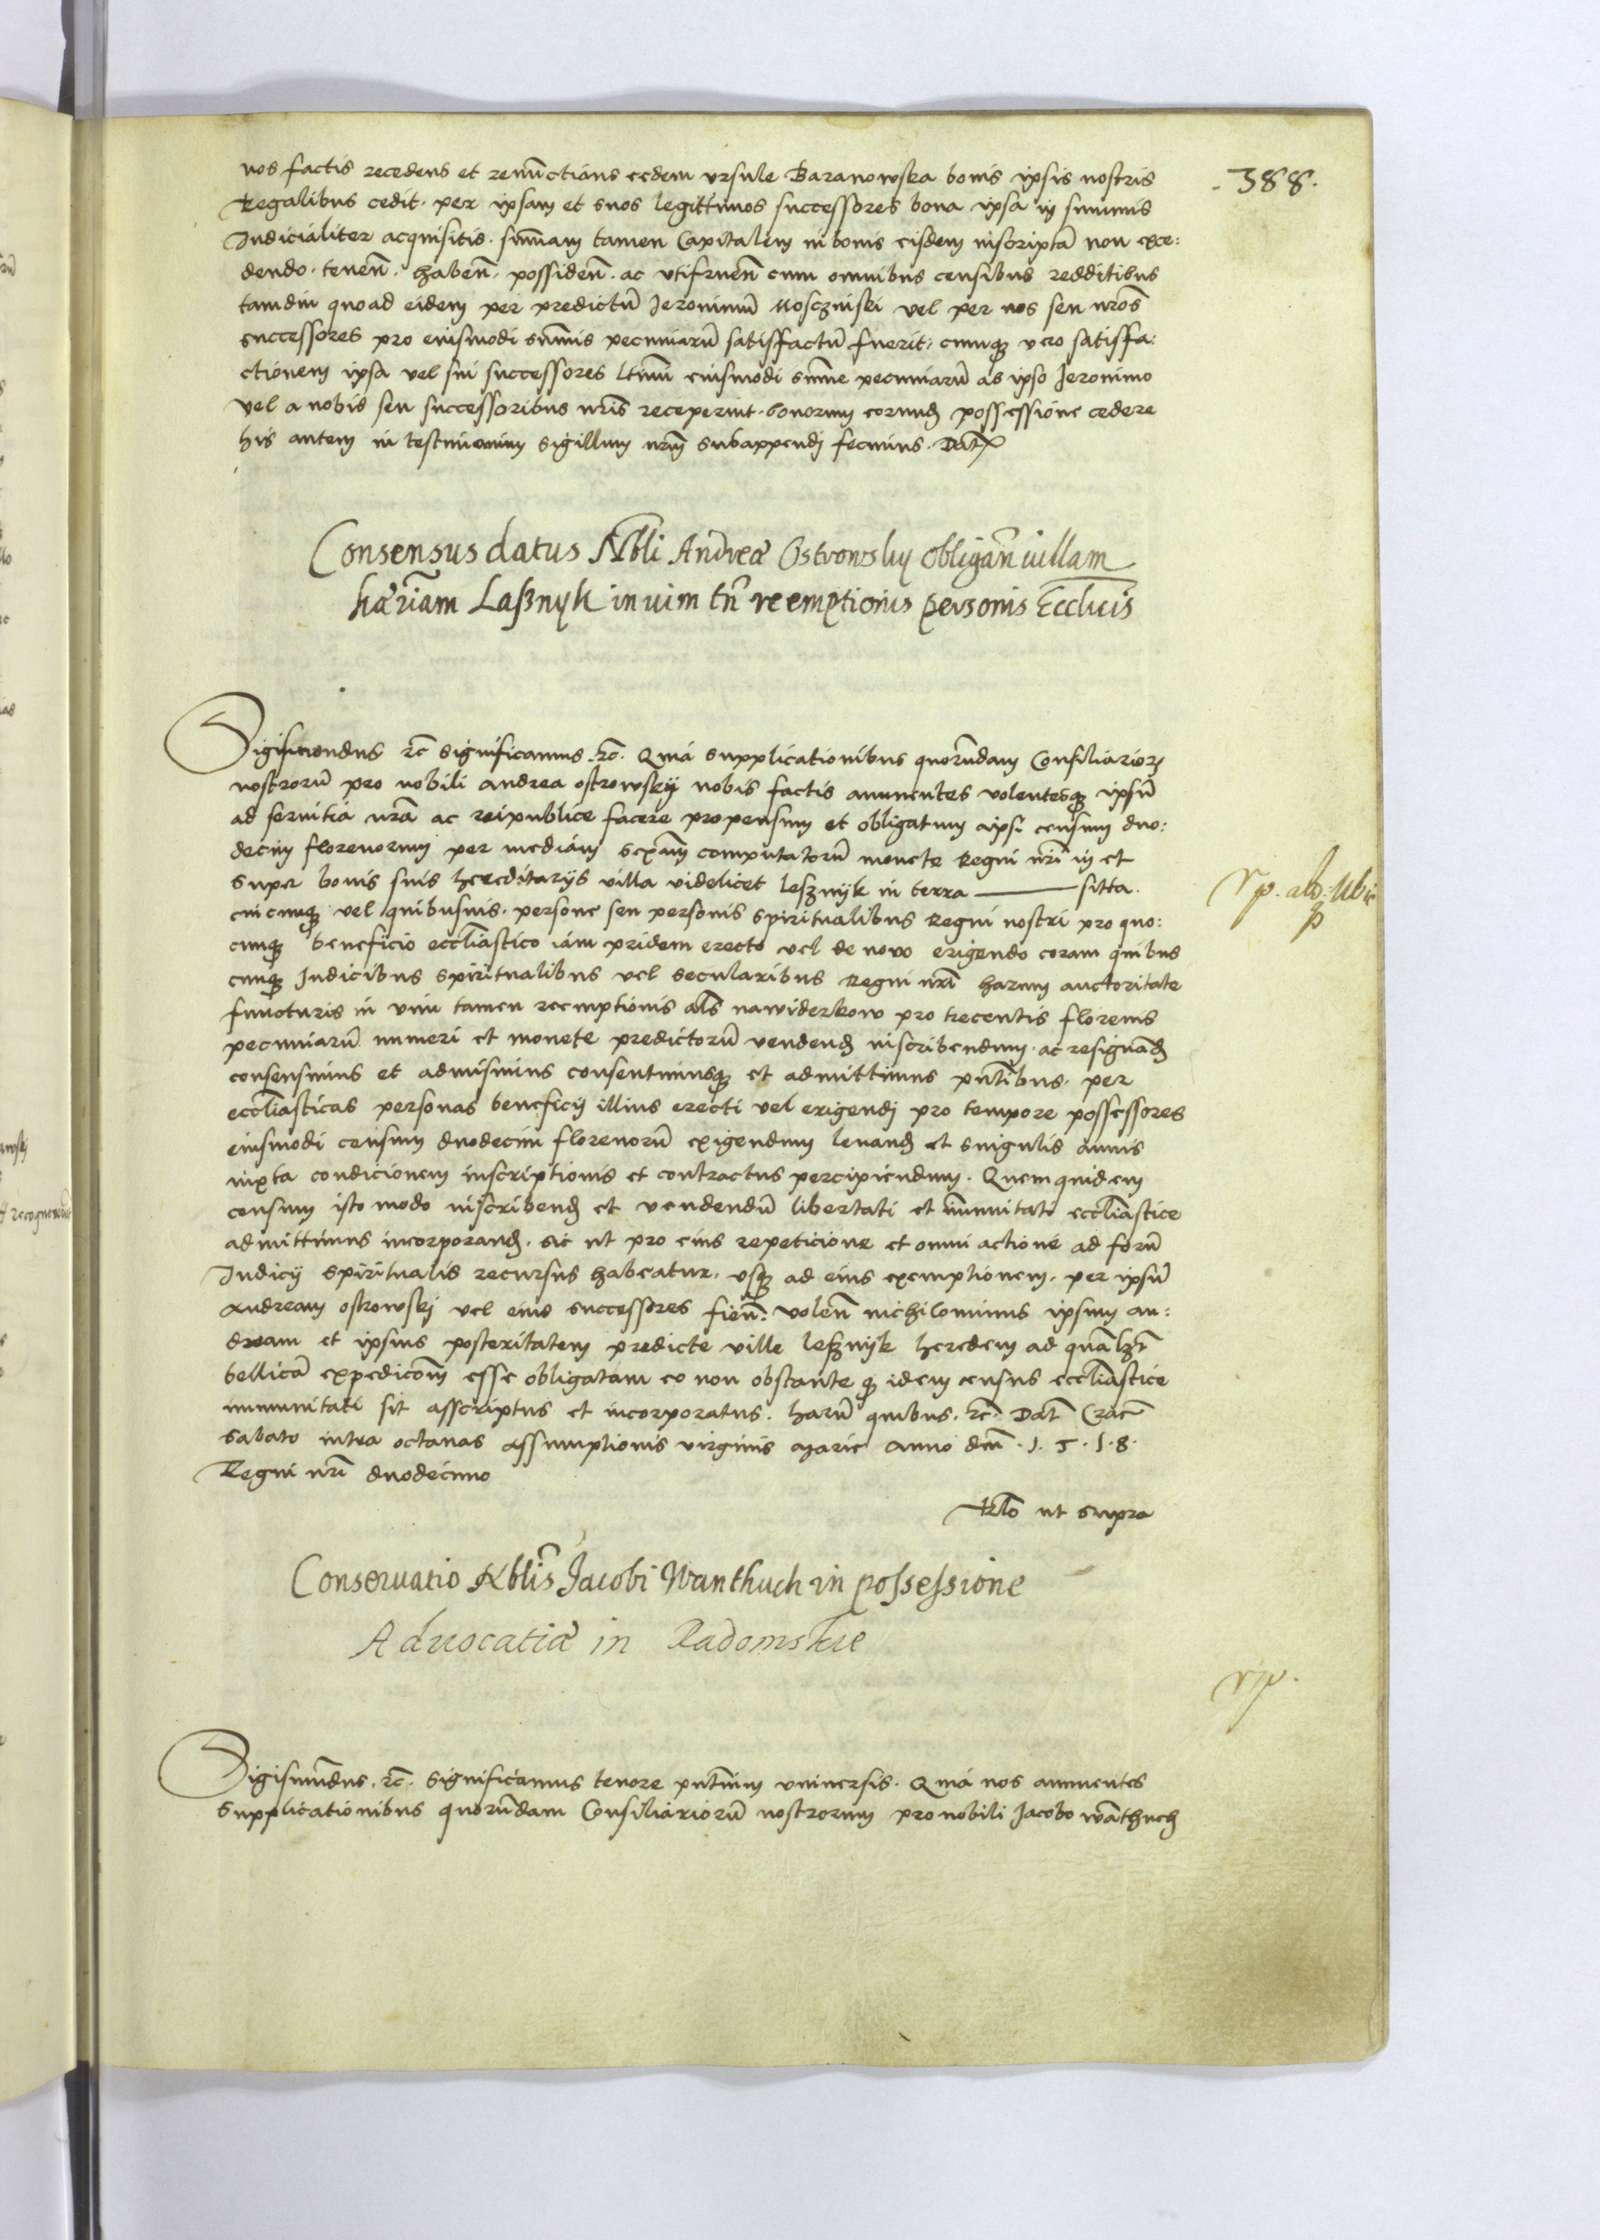 nos factis recedens et renūctians eedem vrsule Baranowska bonis ipsis nostris
.388.
Regalibus cedit. per ipsam et suos legittimos successores bona ipsa in summis
Iudicialiter acquisitis. sum̄am tamen Capitalem in bonis eisdem inscriptā non exce:
dendo. tenen̄. haben̄. possiden̄. ac vtifruen̄ cum omnibus censibus redditibus
tamdiu quoad eidem per predictū Jeronimū Mosczinski vel per nos seu nr̄os
successores pro eiusmodi sum̄is pecuniarū satisffactū fuerit. cumqꝫ vero satisffa:
ctionem ipsa vel sui successores eiusmodi sum̄e pecuniarū ab ipso Jeronimo
vel a nobis seu successoribus nr̄is receperint. bonorum eorund possessione cedere
his autem in testimonium sigillum nr̄m subappendj fecimus. Dat
Consensus datus Nbli Andreæ Ostrowsky obligan̄ uillam
hæriam Laßnyk in uim tn̄ reemptionis personis Eccl̄icis
Sigismundus ꝛc̄ significamus. ꝛc̄. Quia supplicationibus quorūdam Consiliarioꝝ
nostrorū pro nobili andrea ostrowskij nobis factis annuentes volentesqꝫ ipsū
ad seruitia nr̄a ac reipublice facere propensum et obligatum censum duo:
decim florenorum per mediam sexam̄ computatorū monete Regni nr̄i in et
super bonis suis hereditarijs villa videlicet leßnyk in terra ——— sitta.
rp. ad. Ubi
cuicumqꝫ vel quibusuis. persone seu personis spiritualibus Regni nostri pro quo:
cumqꝫ beneficio eccl̄iastico iam pridem erecto vel de nouo erigendo coram quibus
cumqꝫ Iudicibus spiritualibus vel secularibus Regni nr̄i harum auctoritate
functuris in vim tamen reemptionis al̄s nawiderkow pro trecentis florenis
pecuniarū numeri et monete predictorū vendend inscribendum. ac resignand
consensimus et admisimus consentimusqꝫ et admittimus pn̄tibus. per
eccl̄iasticas personas beneficij illius erecti vel erigendj pro tempore possessores
eiusmodi censum duodecim florenorū exigendum leuand et singulis annis
iuxta condicionem inscriptionis et contractus percipiendum. Quemquidem
censum isto modo inscribend et vendendū libertati et im̄unitati eccl̄iastice
admittimus incorporand. sic ut pro eius repeticione et omni actione ad forū
Iudicij spiritualis recursus habeatur. vsqꝫ ad eius exemptionem. per ipsū
Andream ostrowskj vel eius successores fien̄. volen̄ nichilominus ipsum an:
dream et ipsius posteritatem predicte ville leßnyk heredem ad quāl
bellicā expedicōm esse obligatam eo non obstante qꝫ idem census eccl̄iastice
immunitati sit asscriptus et incorporatus. harū quibus. ꝛc̄. Dat̄ Crac̄
sabato intra octauas assumptionis virginis Marie anno dm̄. 1.5.18.
Regni nr̄i duodecimo
Rl̄o ut supra
Conseruatio Nbl̄is Jacobi Wanthuch in possessione
Aduocatiæ in Radomskie
rp.
Sigismūdus. ꝛc̄. significamus tenore pn̄tium vniuersis. Quia nos annuentes
supplicationibus quorūdam Consiliariorū nostrorum pro nobili Jacobo wāthuch